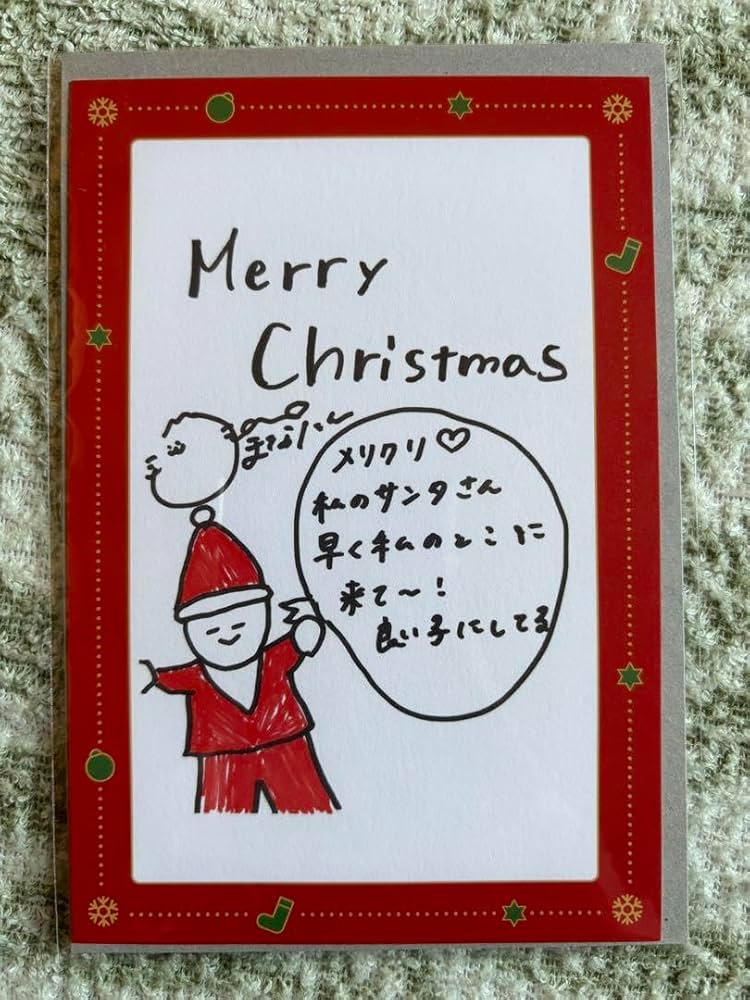 Merry
Christmas
まなたん
メリクリ♡
私のサンタさん
早く私のとこに
来て〜!
良い子にしてる